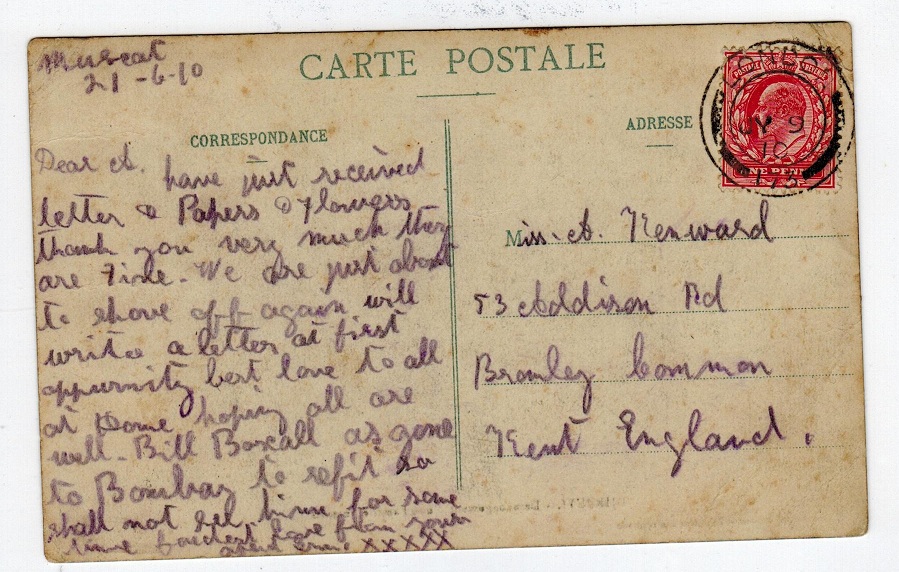 Muscat
21-6-10
CARTE POSTALE
CORRESPONDANCE
ADRESSE
Dear A. have just received
letter & Papers & Flowers
thank you very much they
are Fine. We are just about
to shove off again will
write a letter at first
oppurnity best love to all
at Home hoping all are
well - Bill Boxall as gone
to Bombay to refit so
shall not see him for some
time fondest love from your
xxxxx
Miss. A. Kenward
53 Addison Rd
Bromley Common
Kent England.
POSTAGE
ONE PENNY
JY 9
10